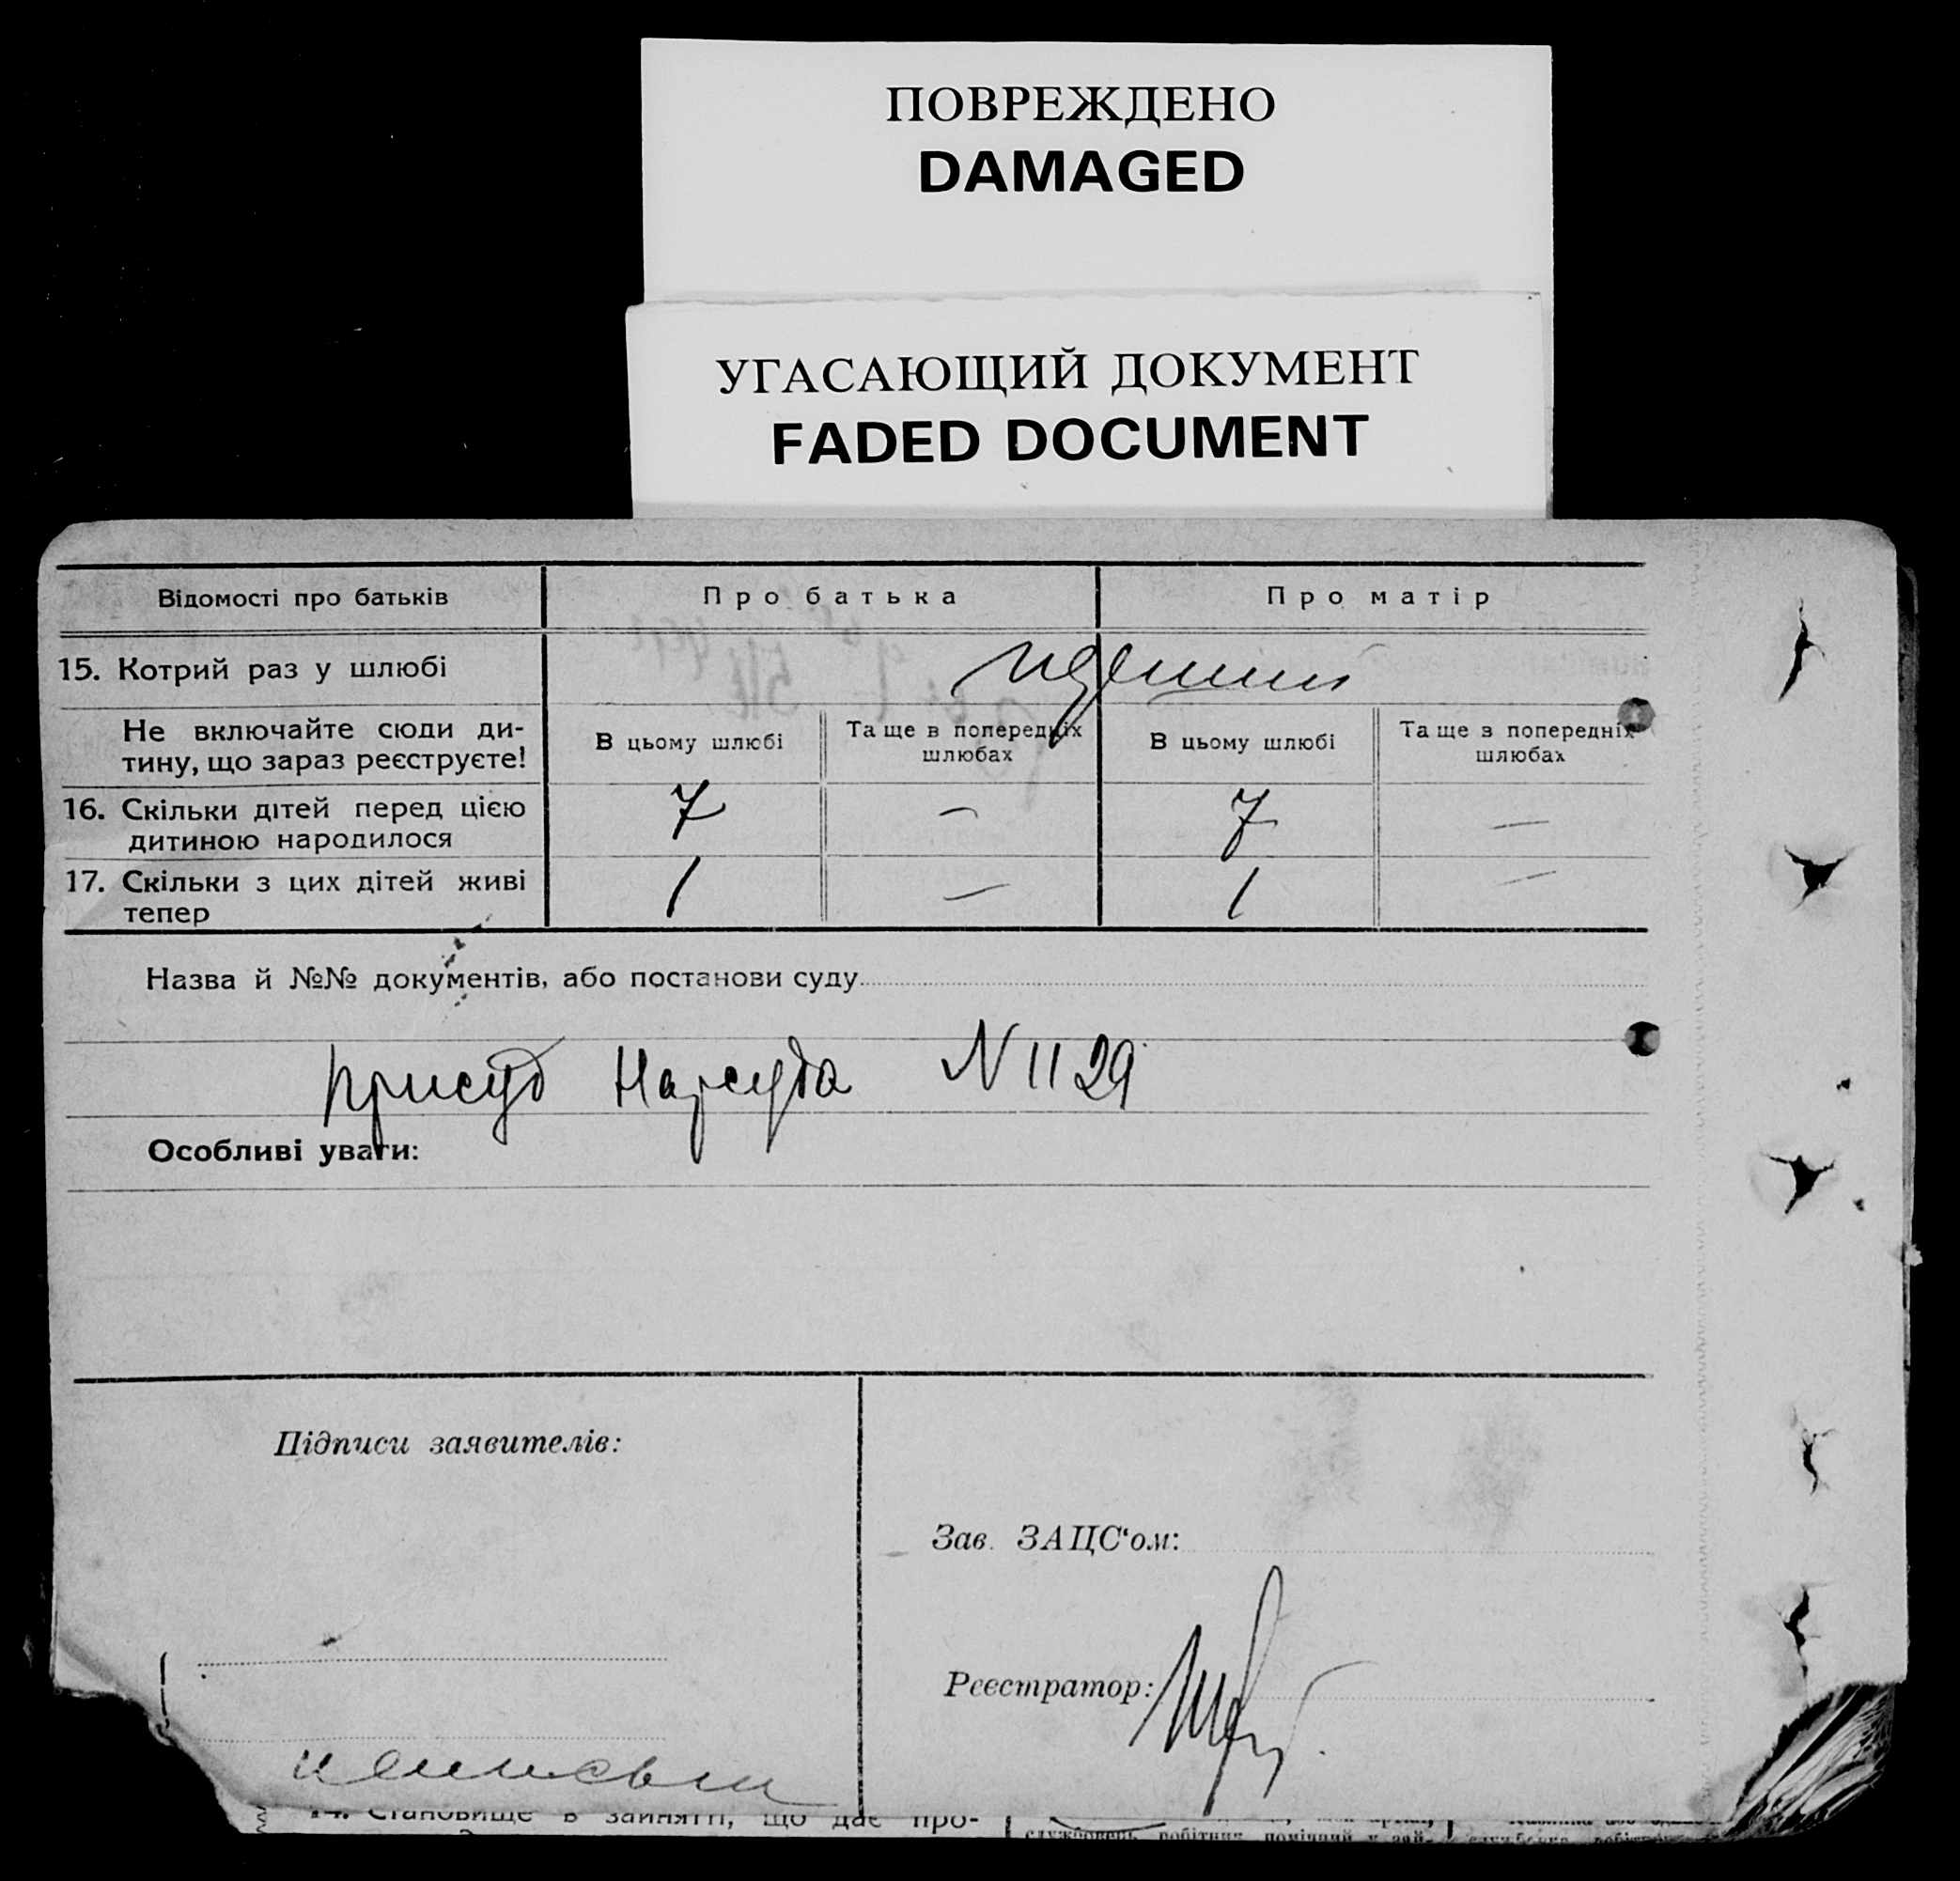 ПОВРЕЖДЕНО
DAMAGED
УГАСАЮЩИЙ ДОКУМЕНТ
FADED DOCUMENT
Відомості про батьків Про батька Про матір
15. Котрий раз у шлюбі
Не включайте сюди ди-
тину, що зараз реєструєте!
В цьому шлюбі
Та ще в попередніх
шлюбах
В цьому шлюбі
Та ще в попередніх
шлюбах
16. Скільки дітей перед цією
дитиною народилося
7 — 7 —
17. Скільки з цих дітей живі
тепер
1 — 1 —
Назва й №№ документів, або постанови суду
Присуд Нарсуда N 1129
Особливі уваги:
Підписи заявителів:
Зав. ЗАЦС‘ом:
Реєстратор:
14. Становище в занятті, що дає про-
службовець, робітник, помічний у зай-